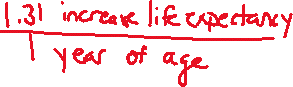 1.31 increase life expectancy
1 year of age